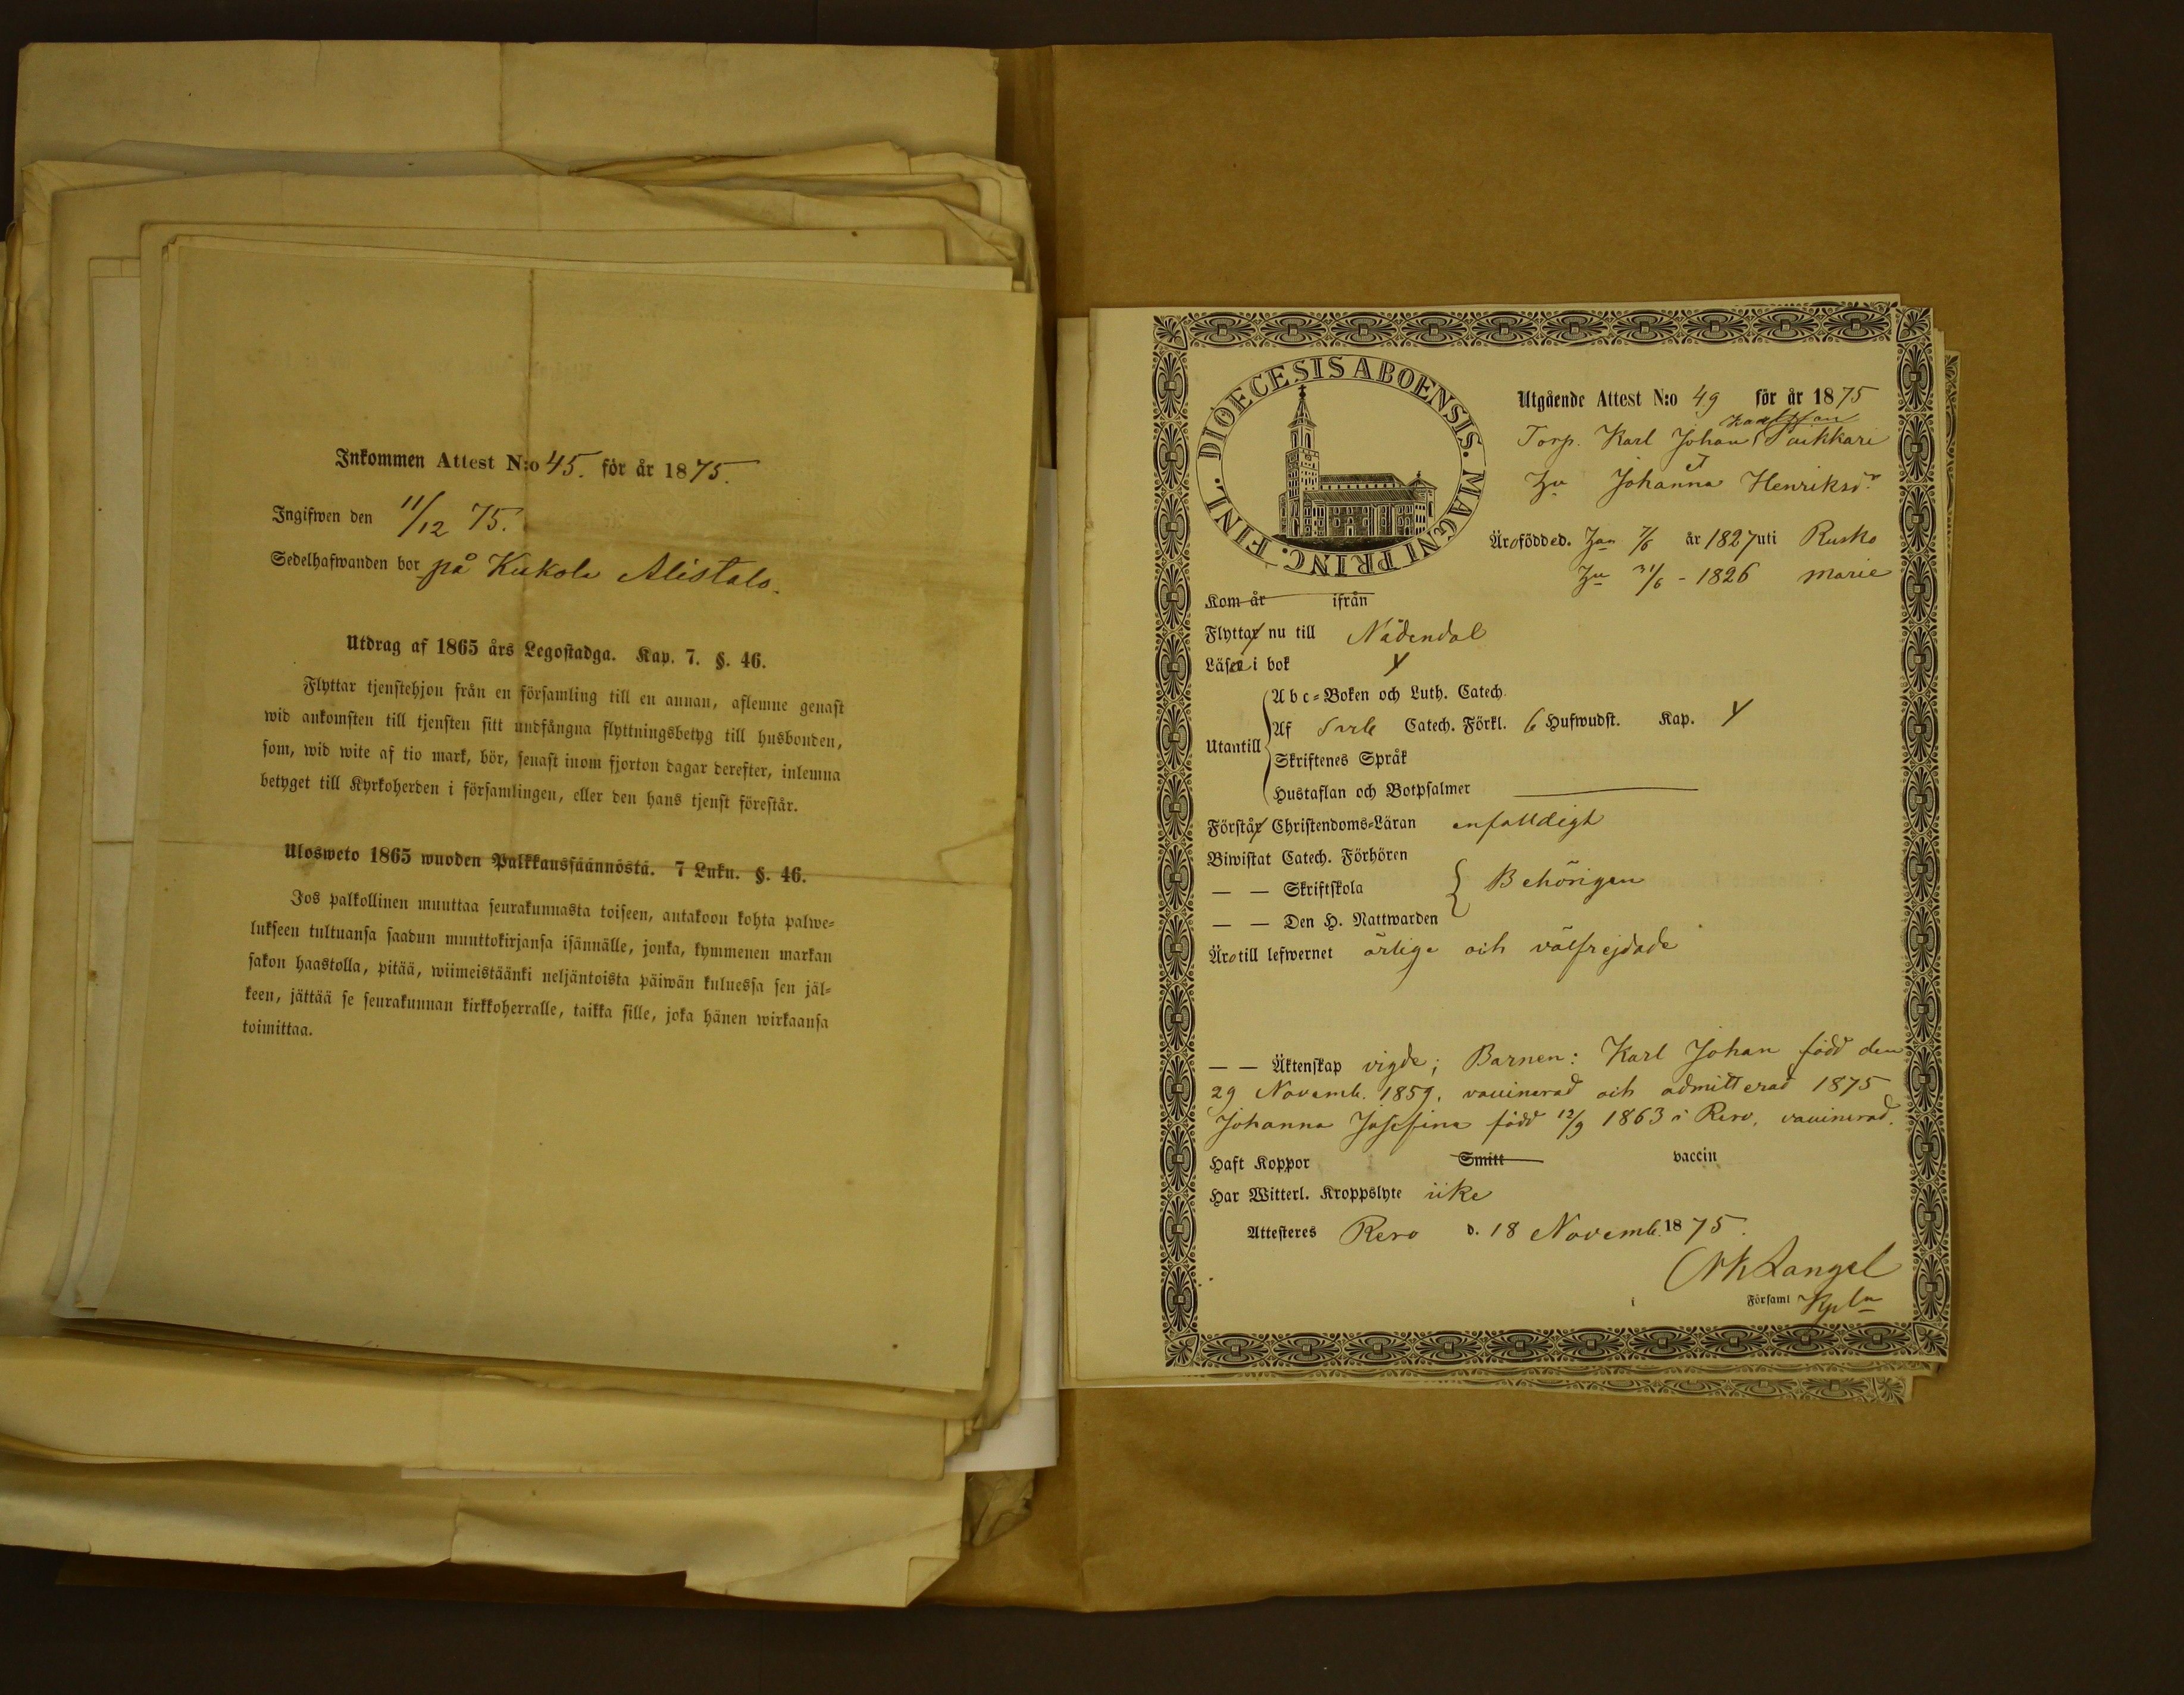 Inkommen Attest N:o 45. för år 1875.
Ingifwen den 11/12 75.
Sedelhafwanden bor på Kukola Alistalo.
Utdrag af 1865 års Legostadga. Kap. 7. §. 46.
Flyttar tjenstehjon från en församling till en annan, aflemne genast
wid ankomsten till tjensten sitt undfångna flyttningsbetyg till husbonden,
som, wid wite af tio mark, bör, senast inom fjorton dagar derefter, inlemna
betyget till Kyrkoherden i församlingen, eller den hans tjenst förestår.
Ulosweto 1865 wuoden Palkkaussäännöstä. 7 Luku. §. 46.
Jos palkollinen muuttaa seurakunnasta toiseen, antakoon kohta palwe=
lukseen tultuansa saadun muuttokirjansa isännälle, jonka, kymmenen markan
sakon haastolla, pitää, wiimeistäänki neljäntoista päiwän kuluessa sen jäl=
keen, jättää se seurakunnan kirkkoherralle, taikka sille, joka hänen wirkaansa
toimittaa.
DIOECESIS ABOENSIS. MAGNI PRINC. FINL.
Utgående Attest N:o 49 för år 1875
Karlsson
Torp. Karl Johan Paikkari
et
Johanna Henriksdr
Äro född ed. 7/6 år 1827 uti Rusko
31/6 - 1826 Marie
Kom år ifrån
Flyttar nu till Nådendal
Läser i bok y
Abc=Boken och Luth. Catech.
Utantill Af Catech. Förkl. 6 Hufwudst. Kap. y
Skriftenes Språk
Hustaflan och Botpsalmer
Förstår Christendoms=Läran enfalldigt
Biwistat Catech. Förhören
— — Skriftskola Behörigen
— — Den H. Nattwarden
Äro till lefwernet ärliga och välfrejdade
— — Äktenskap vigde; Barnen: Karl Johan född den
29 Novemb. 1859. vaccinerad och admitterad 1875
Johanna Josefina född 12/9 1863 i Reso, vaccinerad.
Haft Koppor Smitt vaccin
Har Witterl. Kroppslyte icke
Attesteres Reso d. 18 Novemb. 1875.
Langel
i Församl Kpln